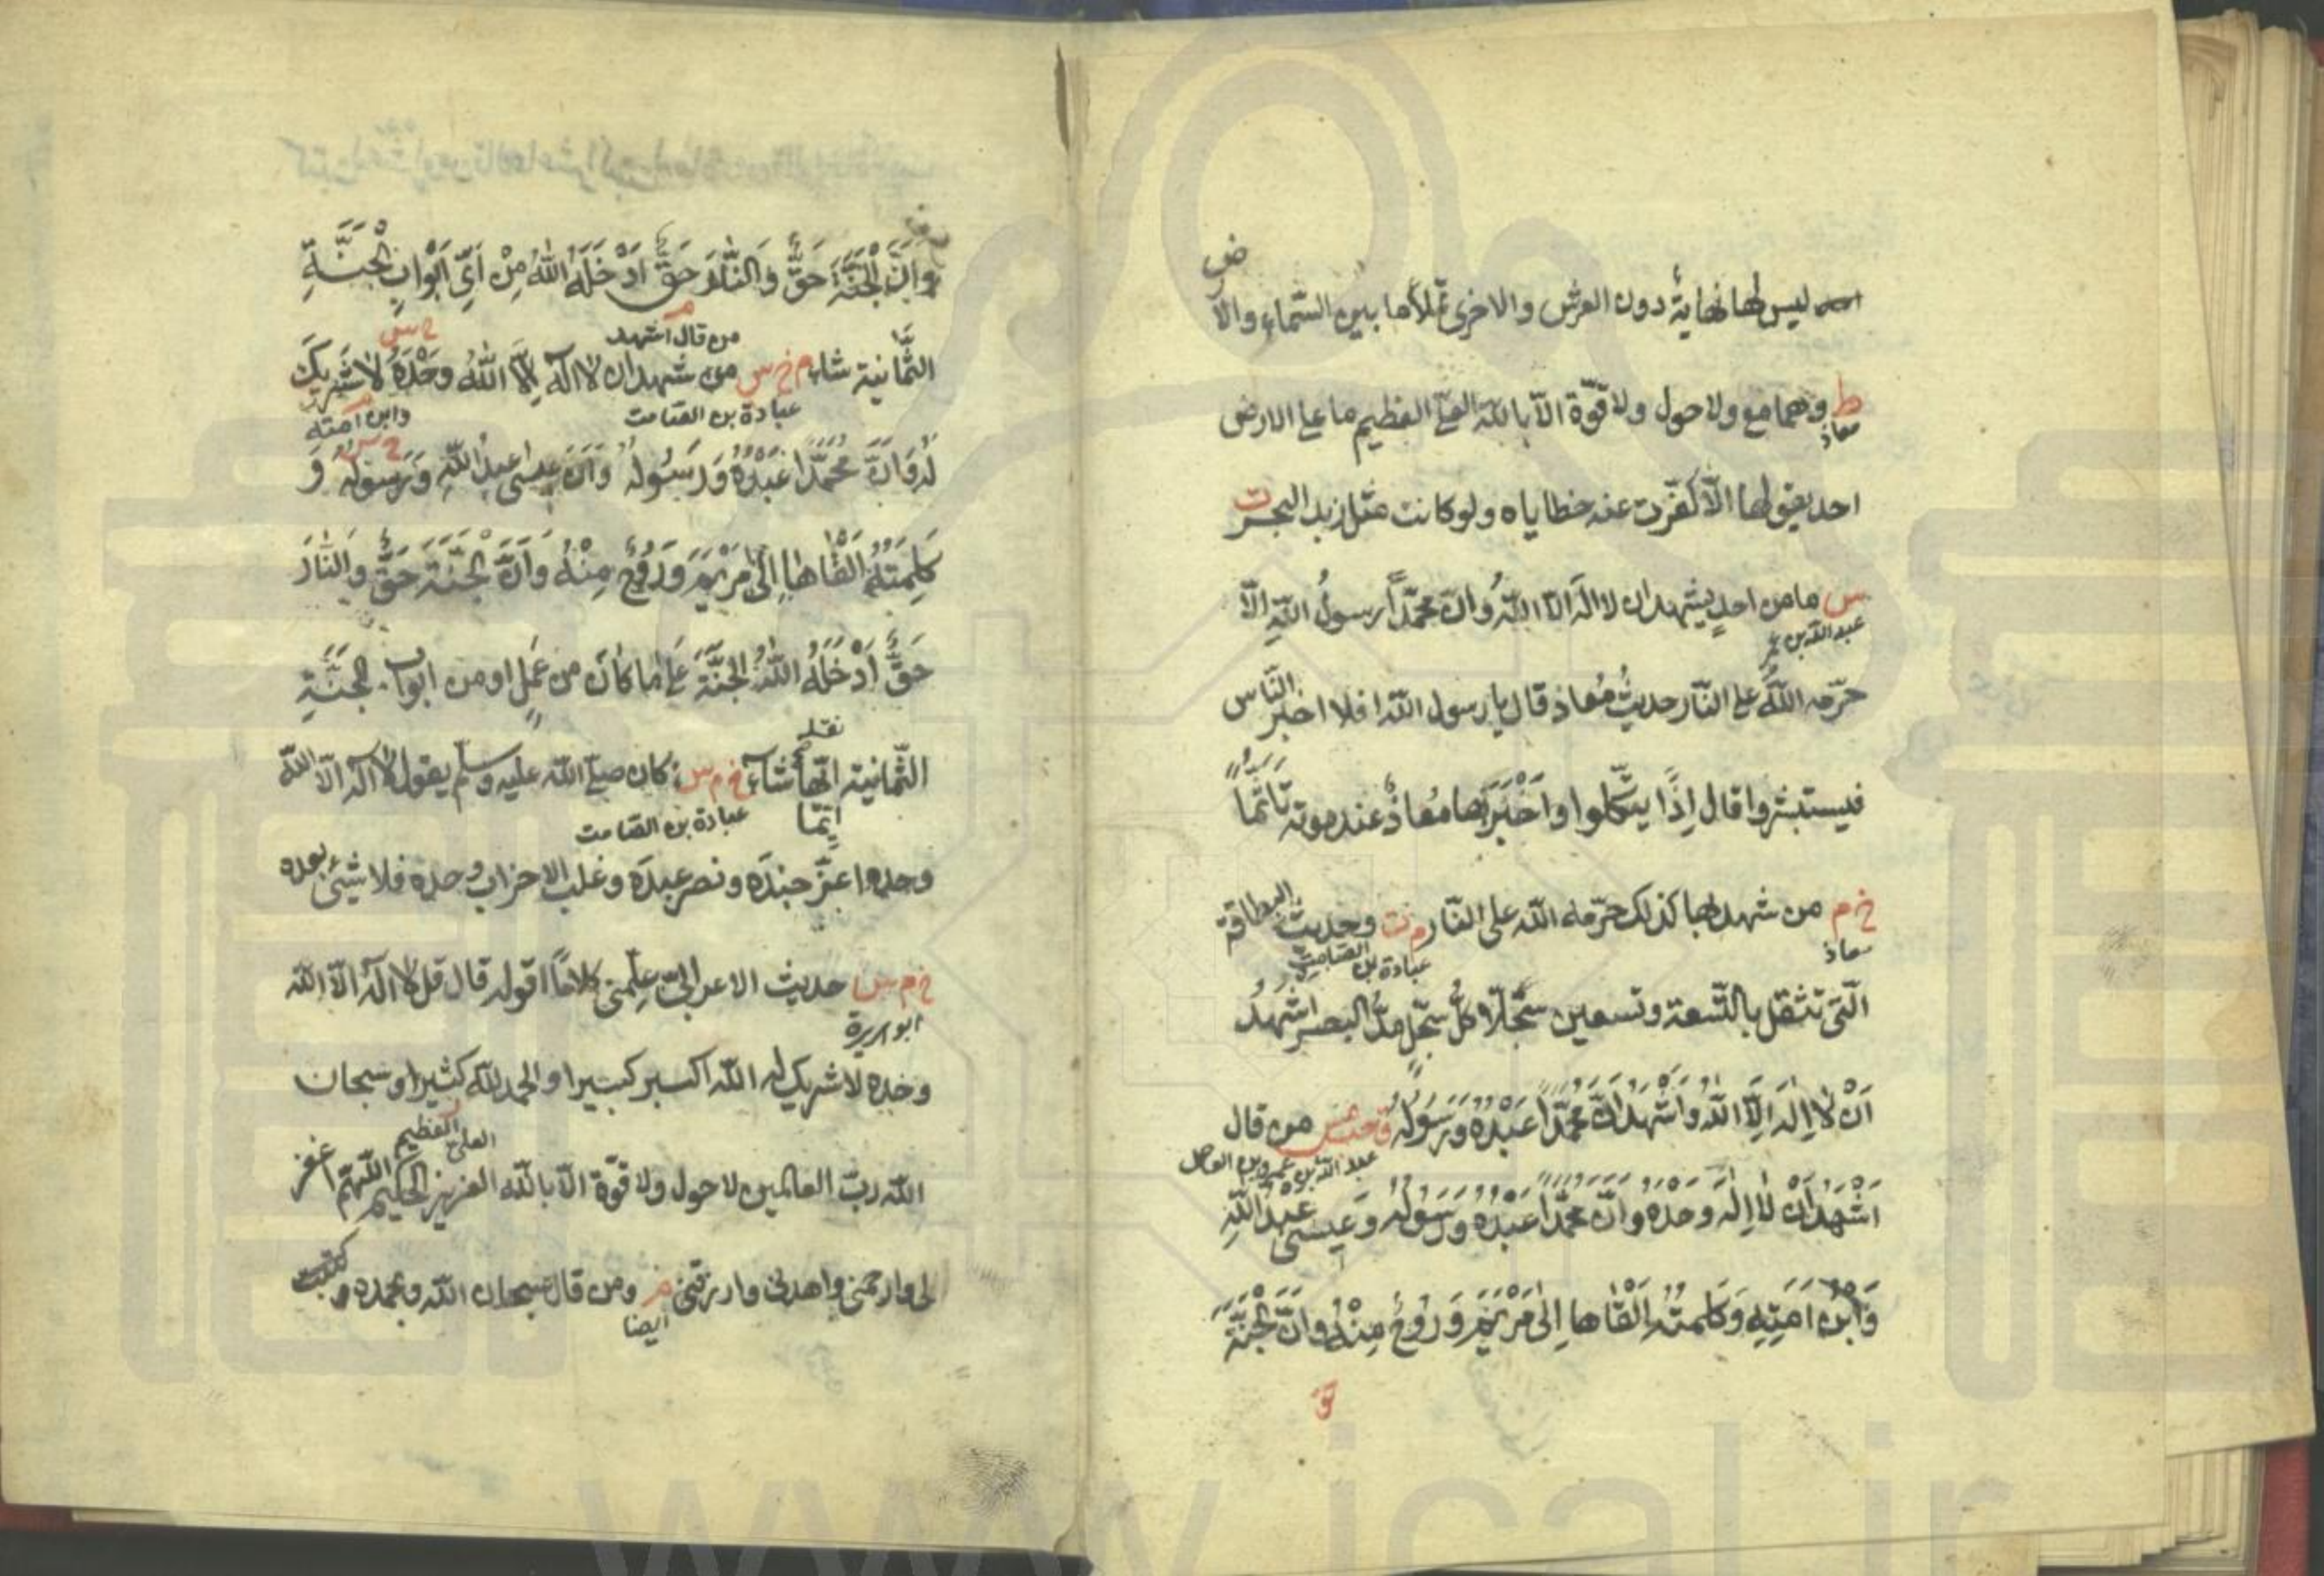 ليس لها نهاية دون العرش والاخرى تملأ ما بين السماء والارض
ط وهما مع ولا حول ولا قوّة الّا باللّه العلىّ العظيم ما على الارض
معاذ
احد يقولها الّا كفّرت عنه خطاياه ولو كانت مثل زبد البحر ت
س ما من احدٍ يشهد ان لا اله الّا اللّه وانّ محمّدًا رسولُ اللّهِ الّا
عبد اللّه بن عمر
حرّمه اللّهُ على النّار حديثُ مُعاذ قال يا رسول اللّه افلا اخبر النّاس
فيستبشروا قال اِذًا يتّكلوا واَخْبَرَ بها مُعاذٌ عند موته تاثّمًا
خ م من شهد بها كذلك حرّمه اللّه على النّار م ت وحديث البطاقة
معاذ
عبادة بن الصّامت
الّتى تثقل بالتّسعة وتسعين سجّلّا كلُّ سجّلٍ مدُّ البصر اشهدُ
اَنْ لا اِلهَ اِلَّا اللّهُ وَاَشْهَدُ اَنَّ مُحَمَّدًا عَبْدُهُ وَرَسُولُهُ ق حب مس من قال
عبد اللّه بن عمرو بن العاص
اَشْهَدُ اَنْ لا اِلهَ وَحْدَهُ وَاَنَّ مُحَمَّدًا عَبْدُهُ وَرَسُولُهُ وَعِيسى عَبْدُ اللّهِ
وَابْنُ اَمَتِهِ وَكَلِمَتُهُ اَلْقَاها اِلى مَرْيَمَ وَرُوحٌ مِنْهُ وَاَنَّ الْجَنَّةَ
وَاَنَّ الْجَنَّةَ حَقٌّ وَالنَّارَ حَقٌّ اَدْخَلَهُ اللّهُ مِنْ اَىِّ اَبْوَابِ الْجَنَّةِ
من قال اشهد
الثَّمانية شاء م خ س من شهد ان لا اله اِلَّا اللّهُ وَحْدَهُ لا شَرِيكَ
عبادة بن الصّامت
وابن امته
لَهُ وَاَنَّ مُحَمَّدًا عَبْدُهُ وَرَسُولُهُ وَاَنَّ عِيسى عبدُ اللّهِ وَرَسُولُهُ وَ
كَلِمَتُهُ اَلْقَاها اِلى مَرْيَمَ وَرُوحٌ مِنْهُ وَاَنَّ الْجَنَّةَ حَقٌّ وَالنَّارَ
حَقٌّ اَدْخَلَهُ اللّهُ الْجَنَّةَ عَلى ما كانَ من عَمَلٍ او من ابواب الجَنَّةِ
الثّمانية ايّها شاء خ م س كان صلّى اللّه عليه وسلّم يقول لا اله الّا اللّه
عبادة بن الصّامت
وحده اعزّ جندَه ونصر عبدَه وغلب الاحزاب وحده فلا شىءَ بعده
خ م س حديث الاعرابىّ علّمنى كلامًا اقوله قال قل لا اله الّا اللّه
ابو هريرة
وحده لا شريك له اللّه اكبر كبيرا والحمد للّه كثيرا وسبحان
العلىّ العظيم
اللّه ربّ العالمين لا حول ولا قوّة الّا باللّه العزيز الحكيم اللّهمّ اغفر
لى وارحمنى واهدنى وارزقنى م ومن قال سبحان اللّه وبحمده كتبت
ايضا
www.ical.ir